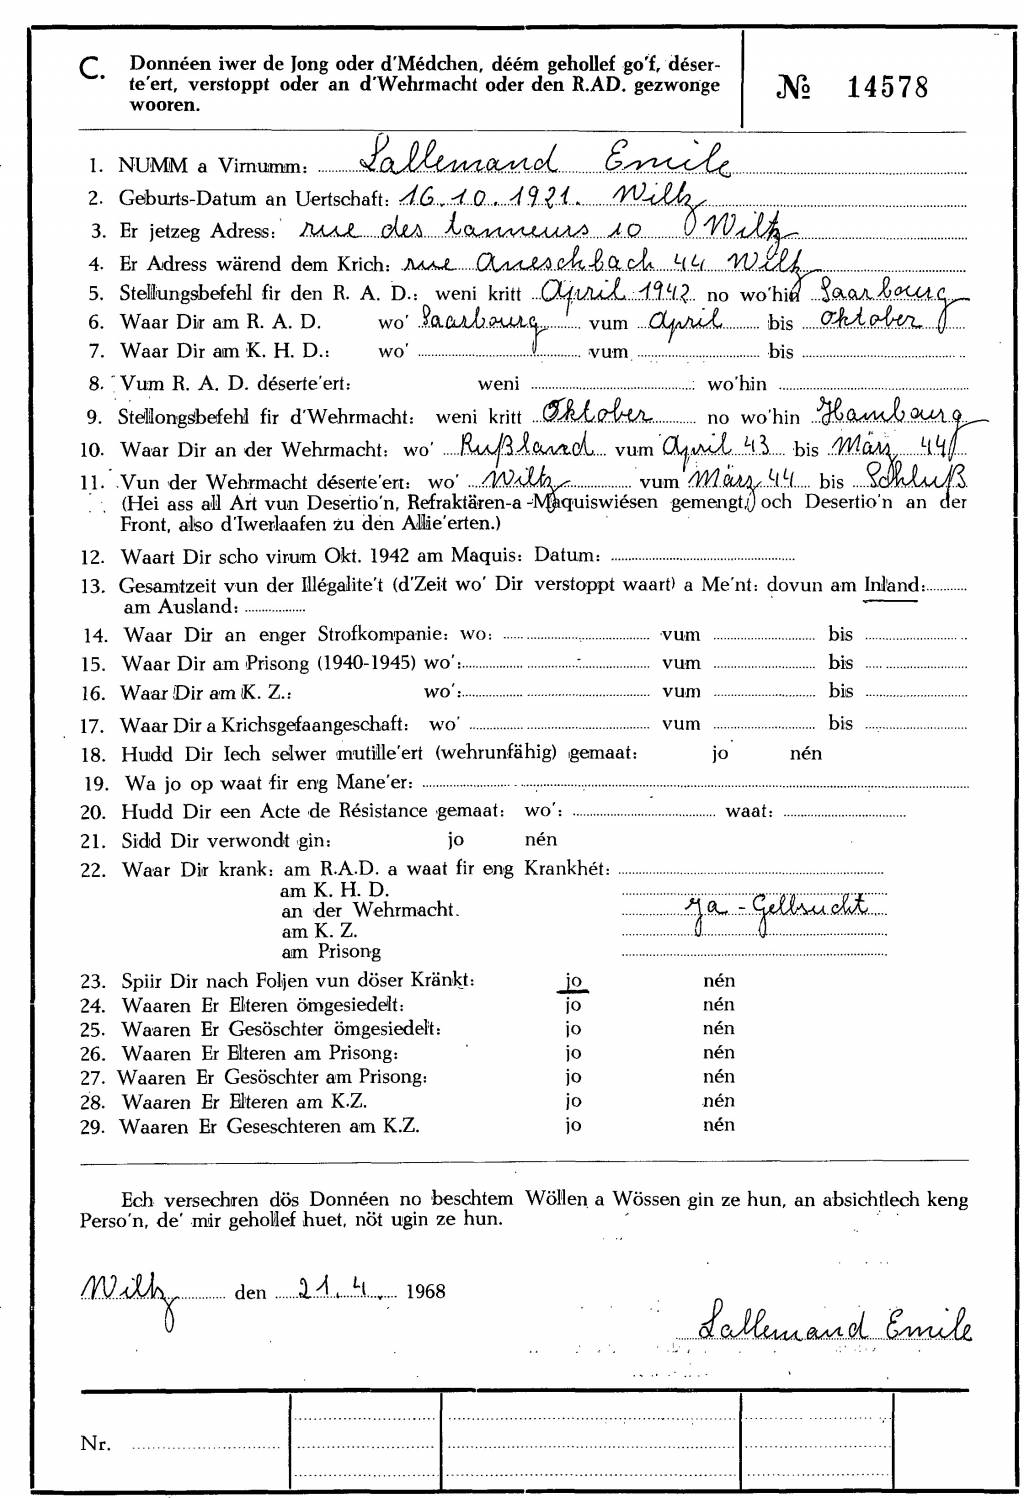 C. Donnéen iwer de Jong oder d'Médchen, déém gehollef go'f, déser-
te'ert, verstoppt oder an d'Wehrmacht oder den R.AD. gezwonge
wooren.
№ 14578
1. NUMM a Virnumm: Lallemand Emile
2. Geburts-Datum an Uertschaft: 16.10.1921. Wiltz
3. Er jetzeg Adress: rue des tanneurs 10 Wiltz
4. Er Adress wärend dem Krich: rue Aneschbach 44 Wiltz
5. Stellungsbefehl fir den R. A. D.: weni kritt April 1942 no wo'hin Saarbourg
6. Waar Dir am R. A. D. wo' Saarbourg vum April bis Oktober
7. Waar Dir am K. H. D.: wo' vum bis
8. Vum R. A. D. déserte'ert: weni wo'hin
9. Stellongsbefehl fir d'Wehrmacht: weni kritt Oktober no wo'hin Hambourg
10. Waar Dir an der Wehrmacht: wo' Rußland vum April 43 bis März 44
11. Vun der Wehrmacht déserte'ert: wo' Wiltz vum März 44 bis Schluß
(Hei ass all Art vun Desertio'n, Refraktären-a -Maquiswiésen gemengt, och Desertio'n an der
Front, also d'Iwerlaafen zu den Allie'erten.)
12. Waart Dir scho virum Okt. 1942 am Maquis: Datum:
13. Gesamtzeit vun der Illégalite't (d'Zeit wo' Dir verstoppt waart) a Me'nt: dovun am Inland:
am Ausland:
14. Waar Dir an enger Strofkompanie: wo: vum bis
15. Waar Dir am Prisong (1940-1945) wo': vum bis
16. Waar Dir am K. Z.: wo': vum bis
17. Waar Dir a Krichsgefaangeschaft: wo' vum bis
18. Hudd Dir Iech selwer mutille'ert (wehrunfähig) gemaat: jo nén
19. Wa jo op waat fir eng Mane'er:
20. Hudd Dir een Acte de Résistance gemaat: wo': waat:
21. Sidd Dir verwondt gin: jo nén
22. Waar Dir krank: am R.A.D. a waat fir eng Krankhét:
am K. H. D.
an der Wehrmacht. Ja - Gelbsucht
am K. Z.
am Prisong
23. Spiir Dir nach Foljen vun döser Kränkt: jo nén
24. Waaren Er Elteren ömgesiedelt: jo nén
25. Waaren Er Gesöschter ömgesiedelt: jo nén
26. Waaren Er Elteren am Prisong: jo nén
27. Waaren Er Gesöschter am Prisong: jo nén
28. Waaren Er Elteren am K.Z. jo nén
29. Waaren Er Geseschteren am K.Z. jo nén
Ech versechren dös Donnéen no beschtem Wöllen a Wössen gin ze hun, an absichtlech keng
Perso'n, de' mir gehollef huet, nöt ugin ze hun.
Wiltz den 21.4. 1968
Lallemand Emile
Nr.